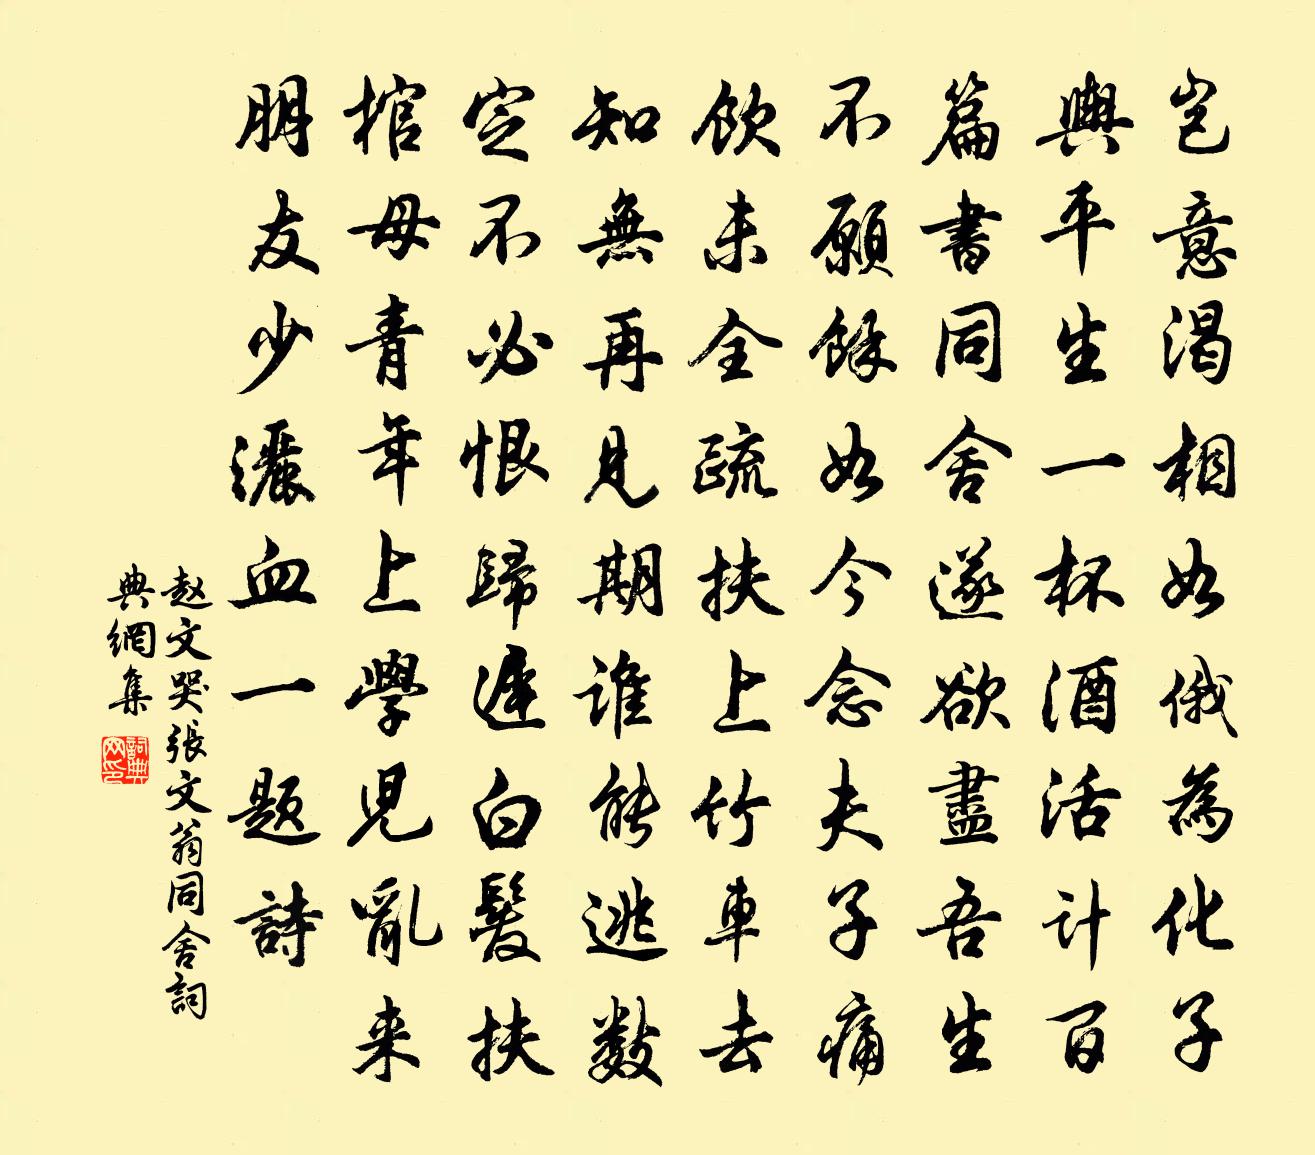 豈意渴相如俄為化子
輿平生一杯酒活計百
篇書同舍遂欲盡吾生
不願餘如今念夫子痛
飲未全疏扶上竹車去
知無再見期誰能逃數
定不必恨歸遲白髮扶
棺母青年上學兒亂来
朋友少灑血一題詩
赵文哭張文翁同舍詞
典網集
詞典
网印